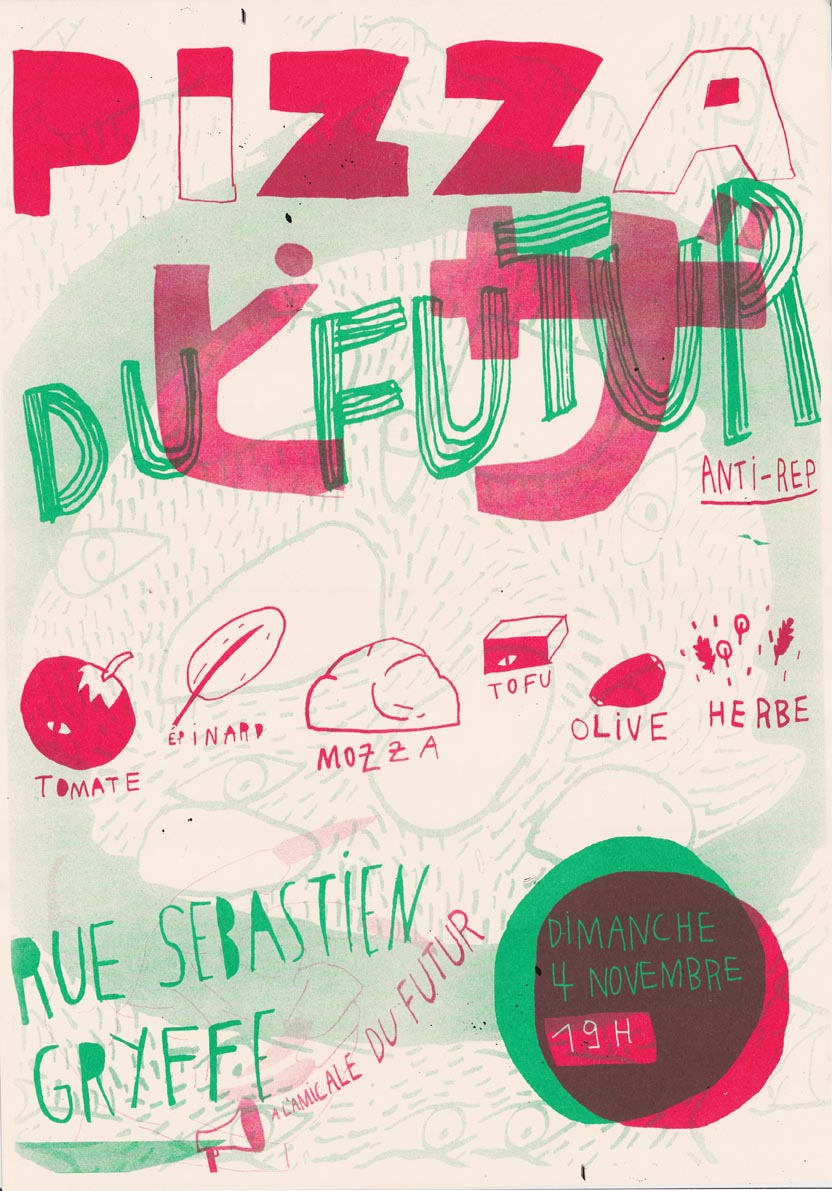 PIZZA
DU FUTUR
ANTI-REP
TOMATE
ÉPINARD
MOZZA
TOFU
OLIVE
HERBE
RUE SEBASTIEN
GRYFFE
A L'AMICALE DU FUTUR
DIMANCHE
4 NOVEMBRE
19H